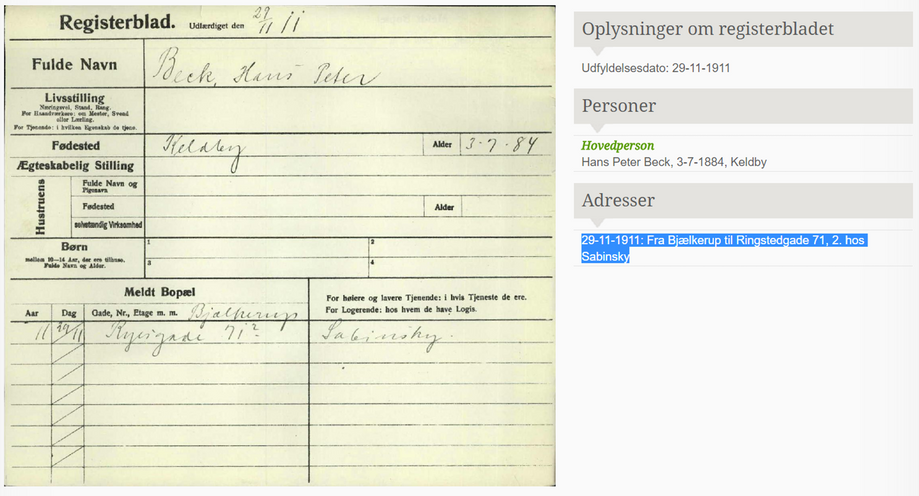 Registerblad. Udfærdiget den 29/11 11
Fulde Navn
Beck, Hans Peter
Livsstilling
Næringsvei, Stand, Rang.
For Haandværkere: om Mester, Svend
eller Lærling.
For Tjenende: i hvilken Egenskab de tjene.
Fødested
Keldby
Alder
3-7-84
Ægteskabelig Stilling
Hustruens
Fulde Navn og
Pigenavn
Fødested
Alder
selvstændig Virksomhed
Børn
mellem 10—14 Aar, der ere tilhuse.
Fulde Navn og Alder.
1
2
3
4
Meldt Bopæl
For høiere og lavere Tjenende: i hvis Tjeneste de ere.
For Logerende: hos hvem de have Logis.
Aar
Dag
Gade, Nr., Etage m. m. Bjælkerup
11 29/11 71 2 Sabinsky.
Oplysninger om registerbladet
Udfyldelsesdato: 29-11-1911
Personer
Hovedperson
Hans Peter Beck, 3-7-1884, Keldby
Adresser
29-11-1911: Fra Bjælkerup til Ringstedgade 71, 2. hos
Sabinsky